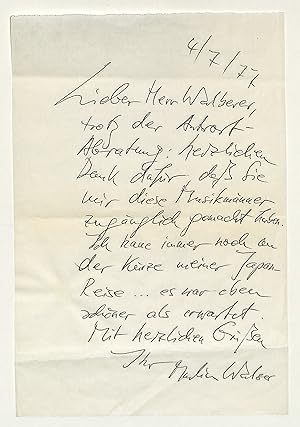 4/7/77
Lieber Herr Walberer,
trotz der Antwort-
Abratung: herzlichen
Dank dafür, daß Sie
mir diese Musikmänner
zugänglich gemacht haben.
Ich kaue immer noch an
der Kürze meiner Japan-
Reise ... es war eben
schöner als erwartet.
Mit herzlichen Grüßen
Ihr Martin Walser